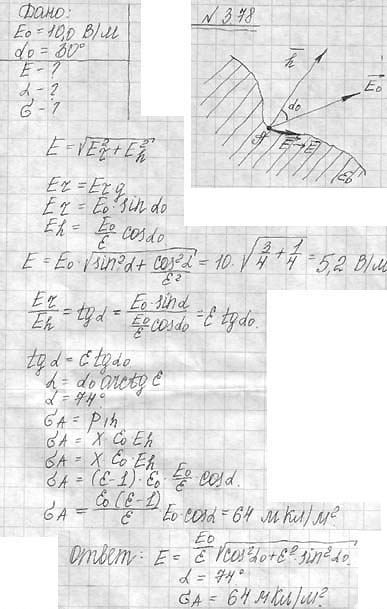 Дано:
E₀ = 10,0 В/м
α₀ = 30°
E - ?
α - ?
σ - ?
N 3.78
n
α₀
E₀
A
E
ε₀
E = √(Eτ² + En²)
Eτ = Eτ₀
Eτ = E₀·sin α₀
En = E₀/ε cos α₀
E = E₀·√(sin²α + cos²α/ε²) = 10·√(3/4 + 1/4) = 5,2 В/м
Eτ/En = tg α = E₀·sin α / (E₀/ε cos α₀) = ε tg α₀.
tg α = ε tg α₀
α = α₀ arctg ε
α = 74°
σA = P in
σA = X·ε₀ En
σA = X·ε₀·En
σA = (ε-1)·ε₀·E₀/ε cos α.
σA = ε₀(ε-1)/ε E₀·cos α = 64 мкл/м²
Ответ: E = E₀/ε √(cos²α₀ + ε²·sin²α₀)
α = 74°
σA = 64 мкл/м²